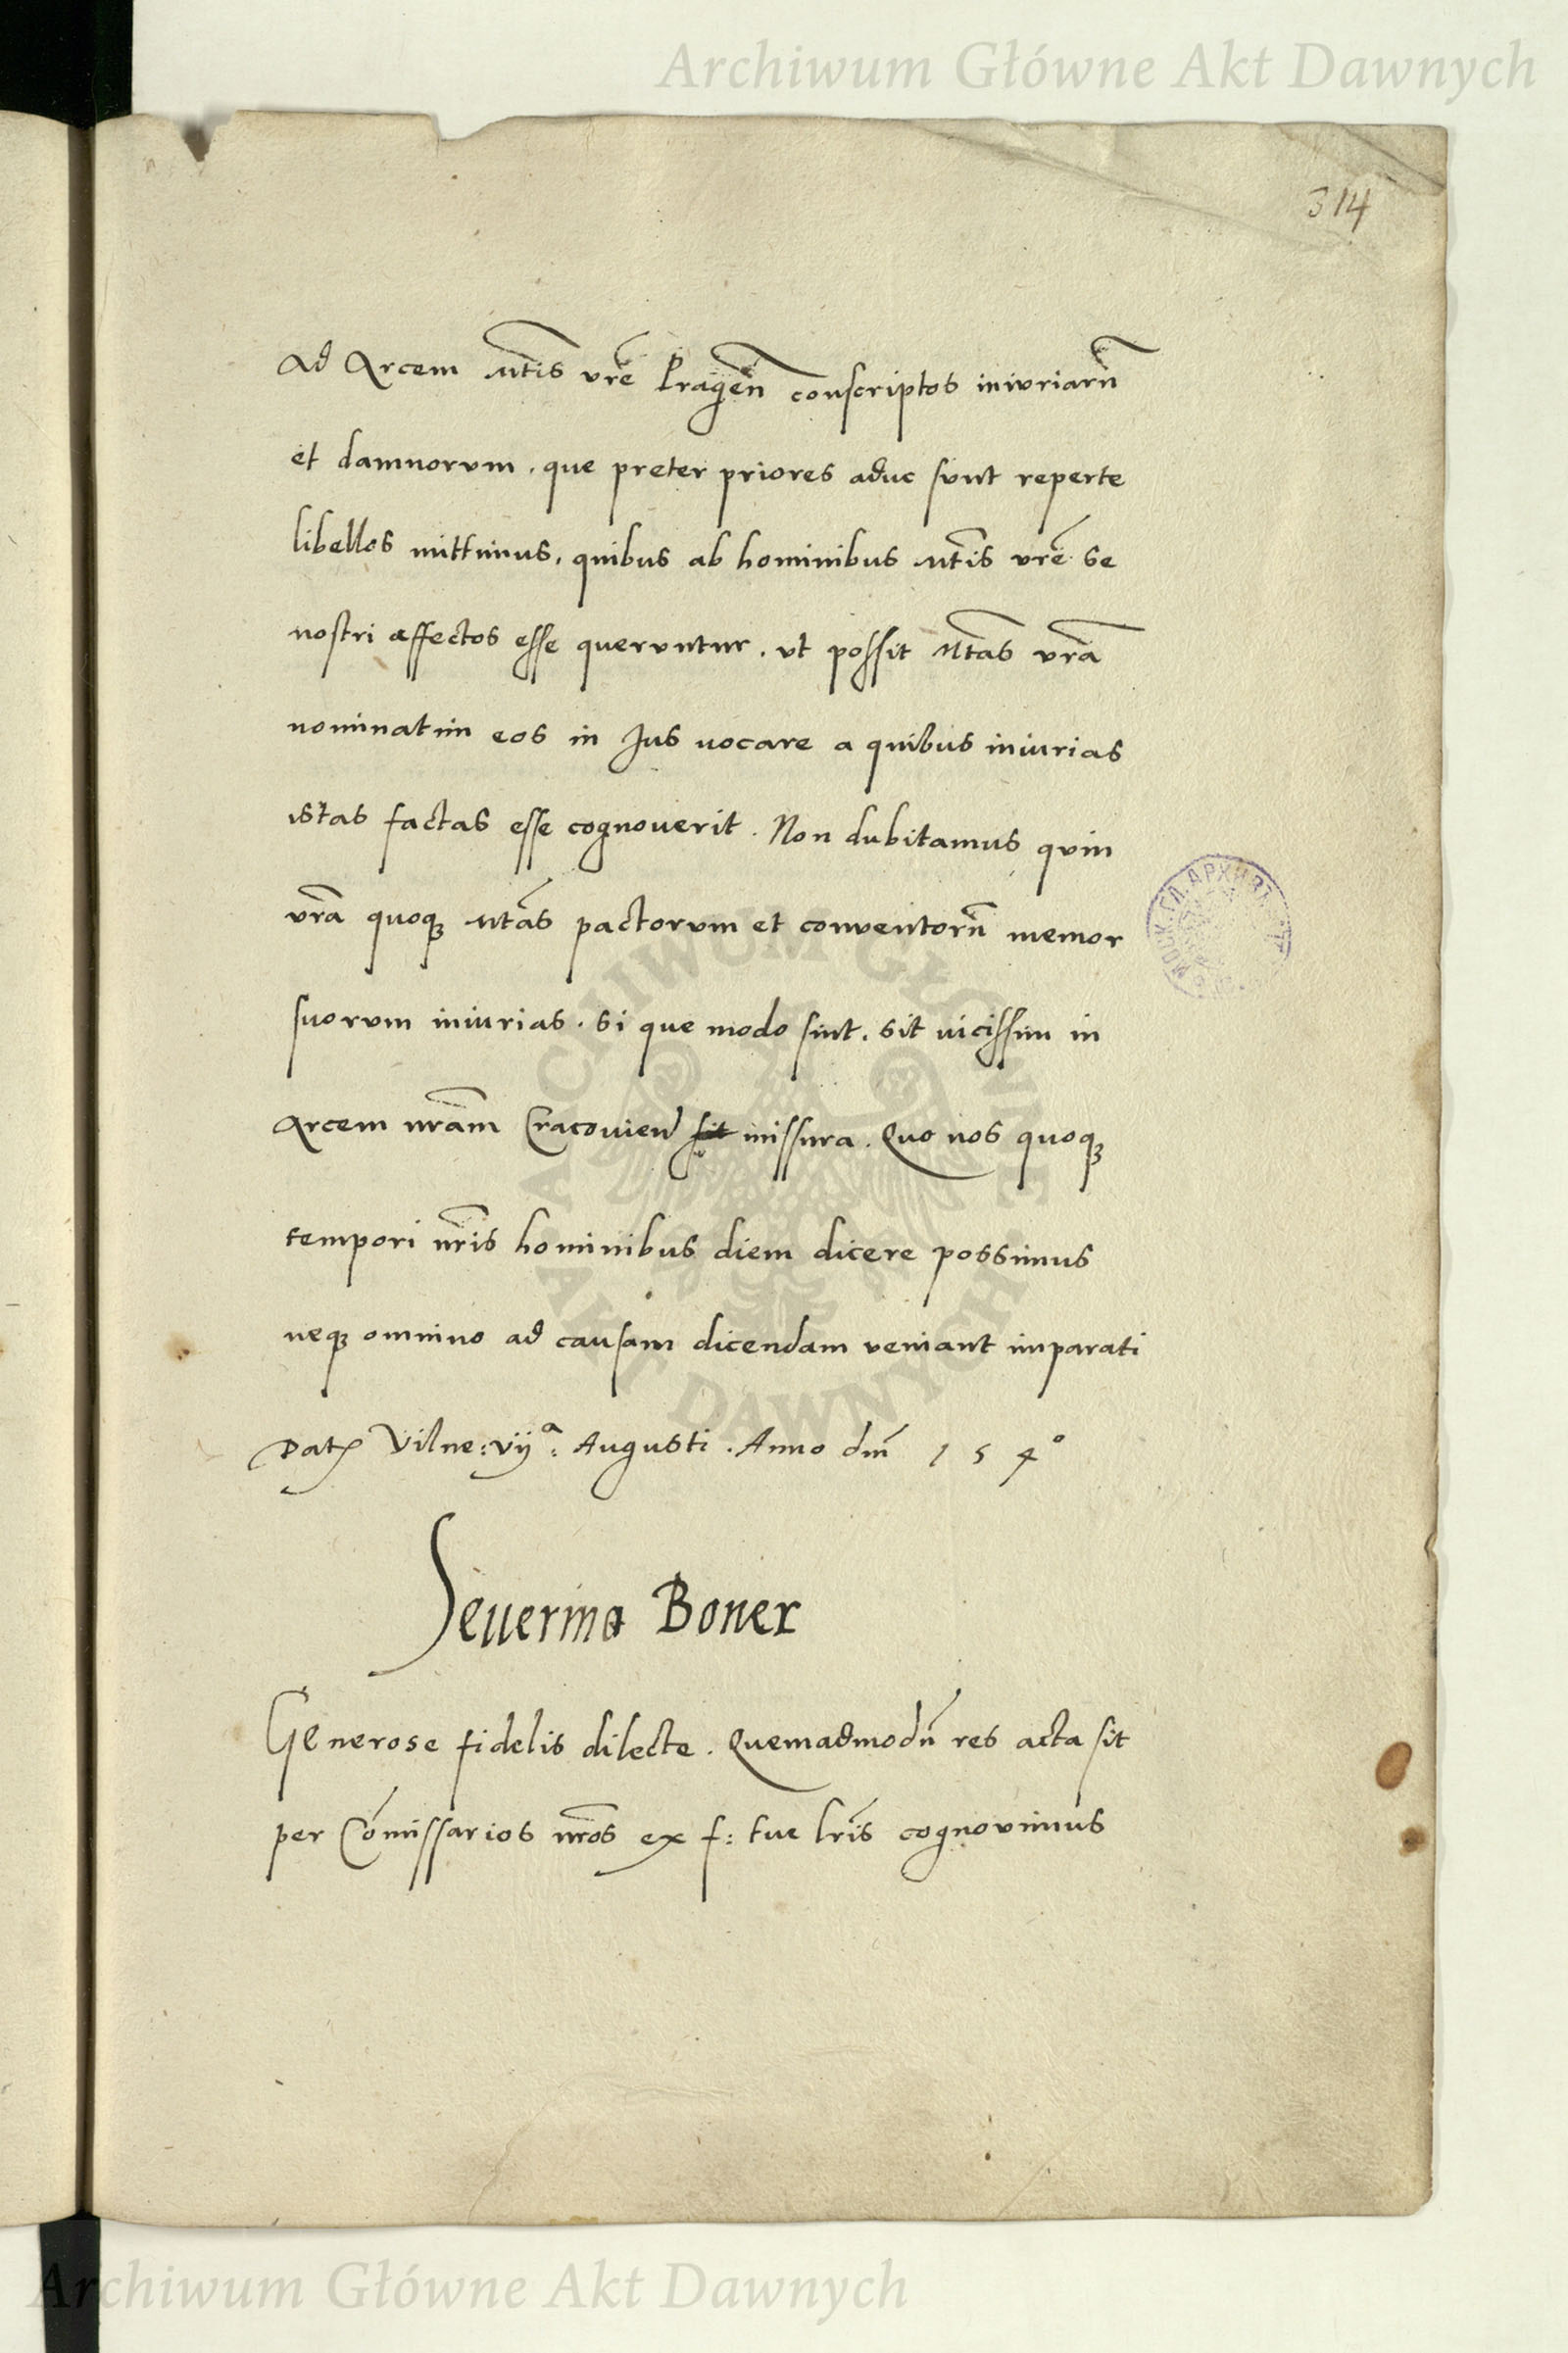 Archiwum Główne Akt Dawnych
314
Ad Arcem Mtis vrē Pragen̄ conscriptos iniuriarū
et damnorum, que preter priores aduc sunt reperte
libellos mittimus, quibus ab hominibus Mtis vrē se
nostri affectos esse queruntur, ut possit Mtas vrā
nominatim eos in Jus uocare a quibus iniurias
istas factas esse cognouerit. Non dubitamus quin
vrā quoqꝫ Mtās pactorum et conuentorū memor
suorum iniurias, si que modo sint, sit uicissim in
Arcem nrām Cracouien̄ sit missura. Quo nos quoqꝫ
tempori nrīs hominibus diem dicere possimus
neqꝫ omnino ad causam dicendam veniant imparati
Datꝭ Vilne: vijᵃ: Augusti. Anno dnī 1 5 4°
Seuerino Boner
Generose fidelis dilecte. Quemadmodū res acta sit
per Cōmissarios nrōs ex f: tue lrīs cognouimus
ARCHIWUM GŁÓWNE
AKT DAWNYCH
Archiwum Główne Akt Dawnych